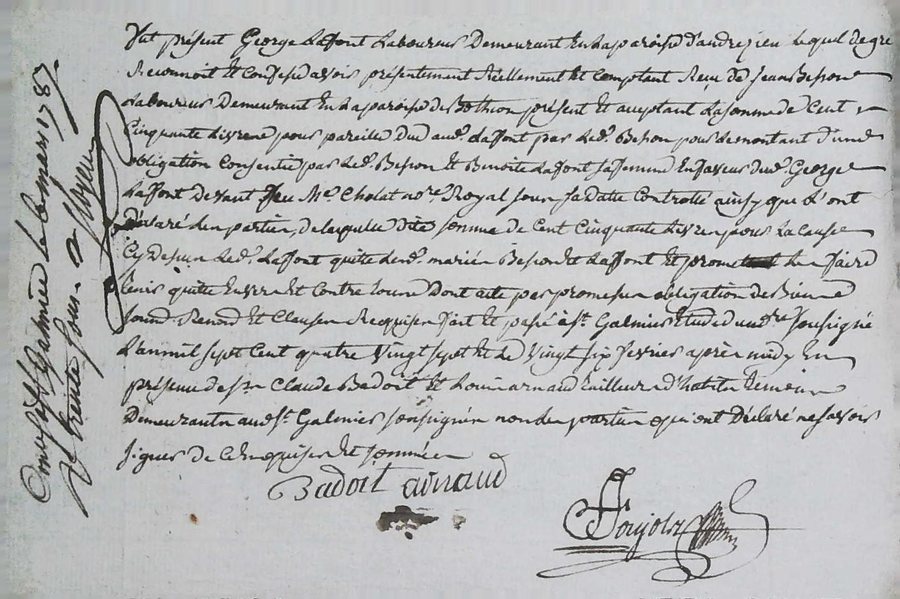 fut présent George Laffont Laboureur Demeurant En La paroisse d'andrezieu Lequel de gré
Reconnoit Et Confesse avoir présentement Réellement Et Comptant Reçu de Jean Besson
Laboureur Demeurant En La paroisse de Bothéon présent Et acceptant La somme de Cent
Cinquante Livres pour pareille Due aud. Laffont par Led. Besson pour le montant d'une
obligation Consentie par Led. Besson Et Benoite Laffont sa femme En faveur dud. George
Laffont Devant feu Me. Cholat nore. Royal sous sa datte Controllé ainsy que L'ont
Déclaré Les parties, de laquelle ditte somme de Cent Cinquante Livres pour La Cause
Cy Dessus Led. Laffont quitte Lesd. mariés Besson Et Laffont Et promet Les faire
tenir quitte Envers Et Contre tous Dont acte par promesses obligation de Biens
soumd. Renond. Et Clauses Requises fait Et passé à St. Galmier Etude du nore. soussigné
L'an mil sept Cent quatre Vingt sept Et Le Vingt six fevrier après midy En
présence de sr. Claude Badoit Et Louis arnaud tailleur d'habits temoins
Demeurants aud. St. Galmier soussignés non les parties qui ont Déclaré ne savoir
signer de Ce Enquises Et sommées
Badoit arnaud
Conllé à St Galmier le 6 mars 1787.
R. trente sous